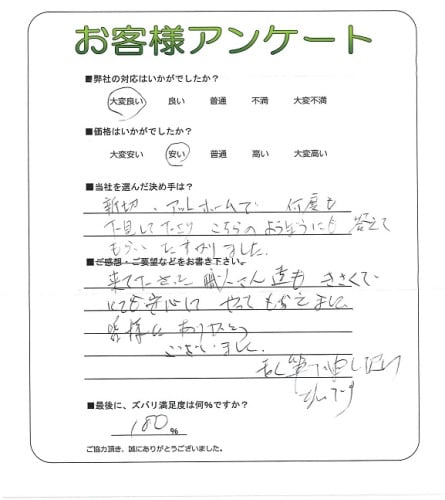 お客様アンケート
■弊社の対応はいかがでしたか?
大変良い 良い 普通 不満 大変不満
■価格はいかがでしたか?
大変安い 安い 普通 高い 大変高い
■当社を選んだ決め手は?
新切、アットホームで 何度も
下見して こちらのようぼうにも 答えて
もらい たすかりました。
■ご感想・ご要望などをお書き下さい。
来て下さった 職人さん達も きさくで
安心に やってもらえました。
皆様に ありがとう
ございました。
乱筆で申しわけ
ないです
■最後に、ズバリ満足度は何%ですか?
100 %
ご協力頂き、誠にありがとうございました。